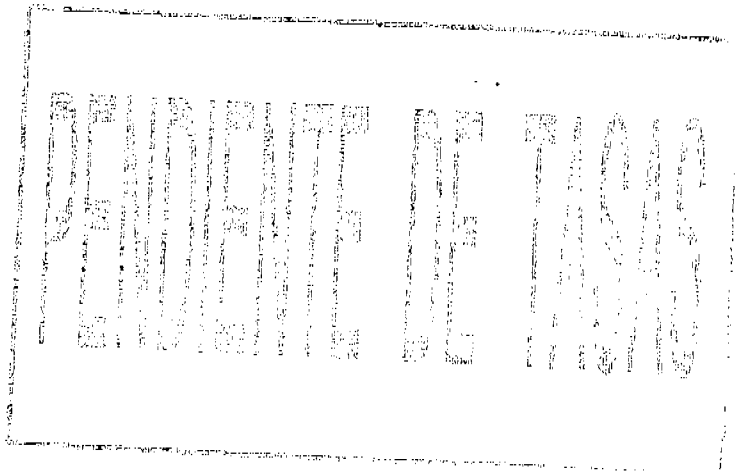 PENDIENTE DE TASAS